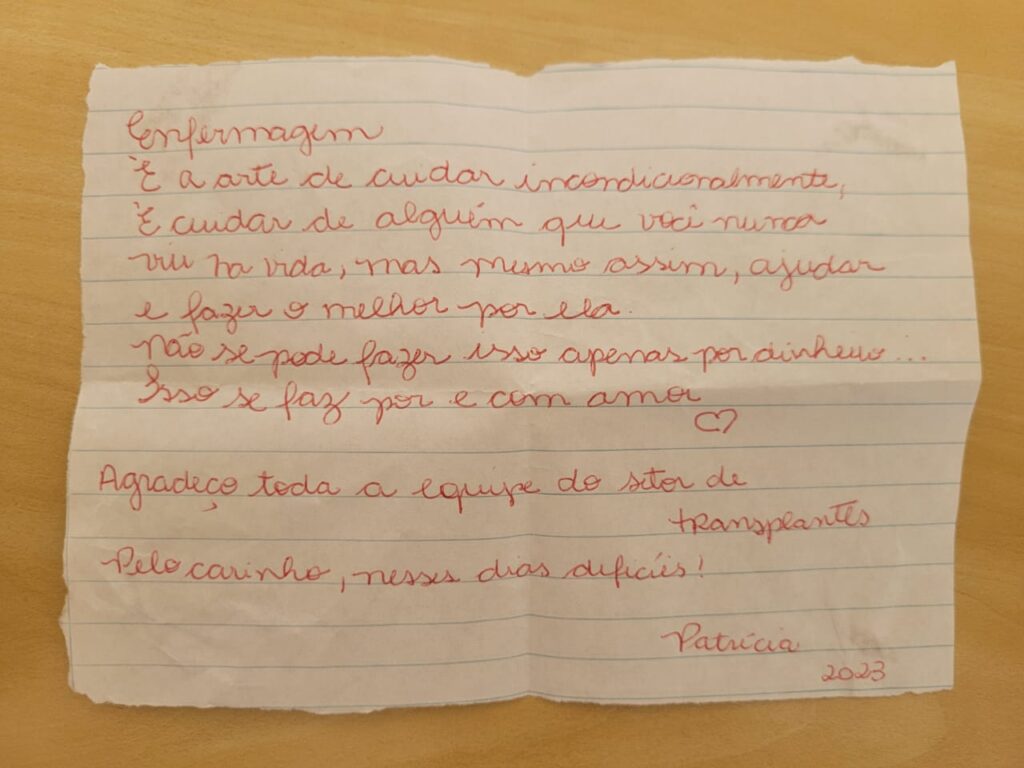 Enfermagem
É a arte de cuidar incondicionalmente,
É cuidar de alguém que você nunca
viu na vida, mas mesmo assim, ajudar
e fazer o melhor por ela.
Não se pode fazer isso apenas por dinheiro...
Isso se faz por e com amor
♡
Agradeço toda a equipe do setor de
transplantes
Pelo carinho, nesses dias dificiéis!
Patrícia
2023